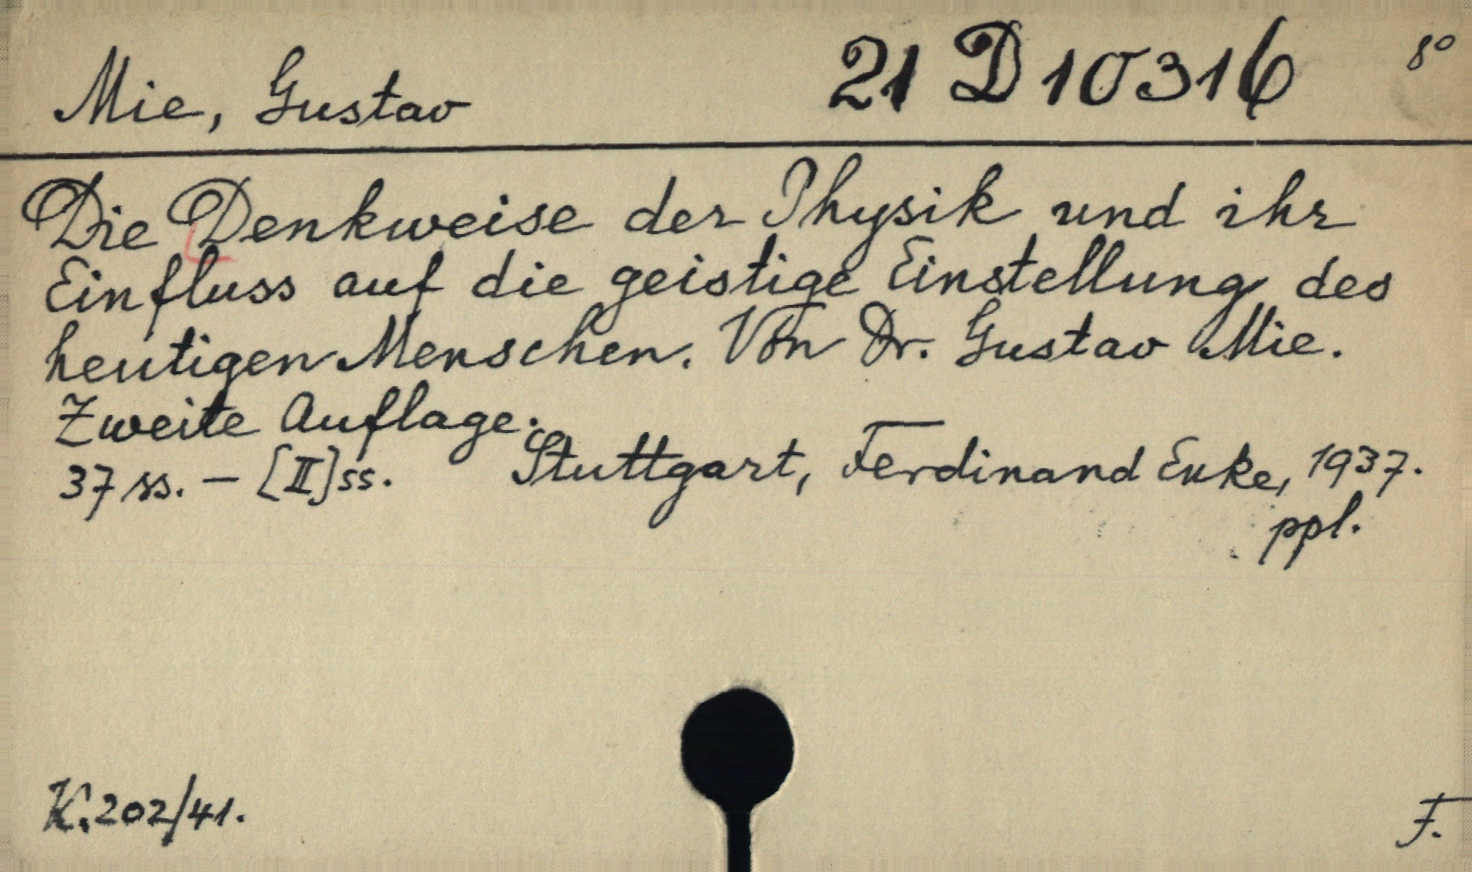 Mie, Gustav 21 D 10316 8°
Die Denkweise der Physik und ihr
Einfluss auf die geistige Einstellung des
heutigen Menschen. Von Dr. Gustav Mie.
Zweite Auflage.
37 ss. – [II] ss. Stuttgart, Ferdinand Enke, 1937.
ppl.
K. 202/41. F.